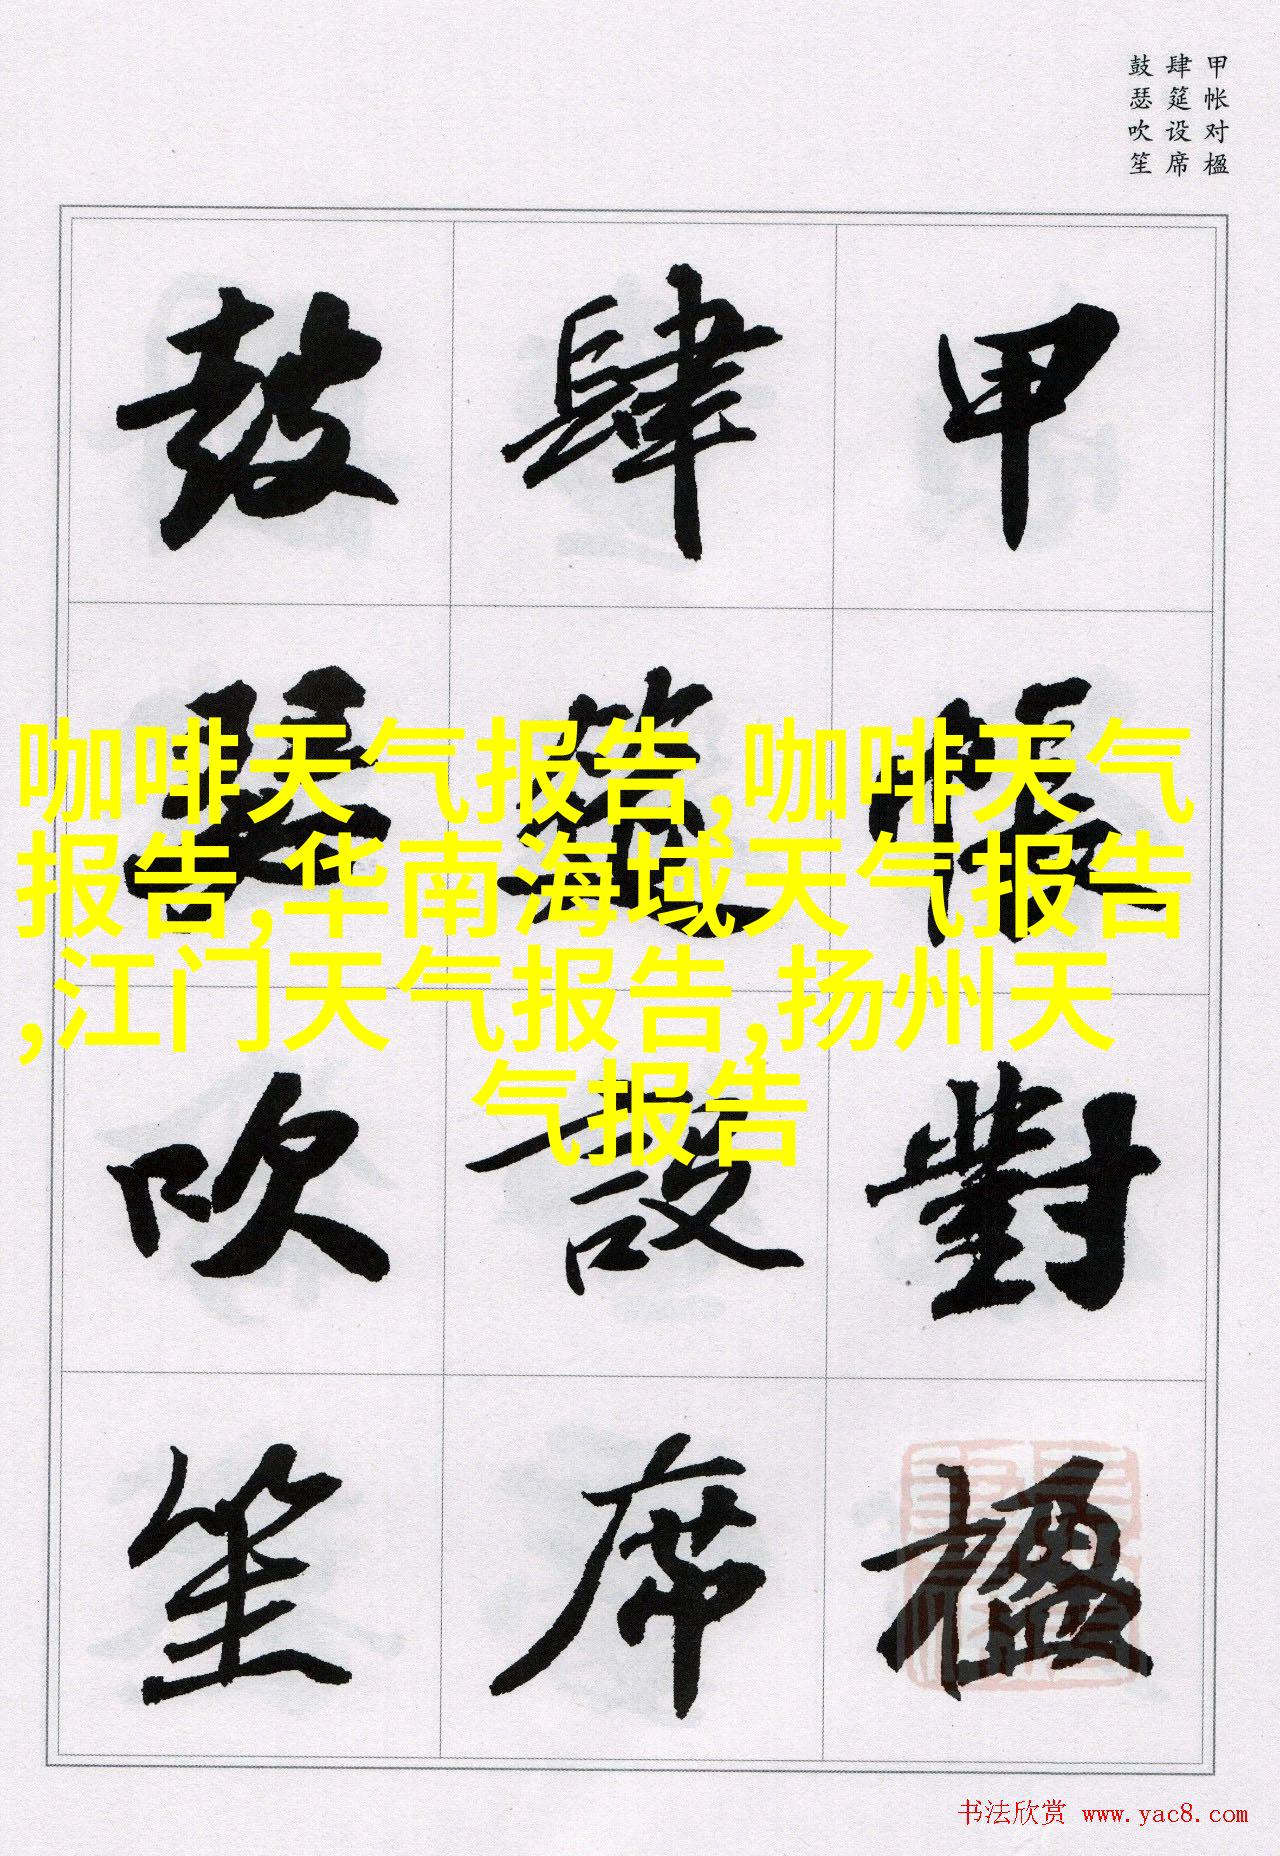 甲帐对楹
肆筵设席
鼓瑟吹笙
甲帳對楹
肆筵設席
鼓瑟吹笙
咖啡天气报告,咖啡天气
报告,华南海域天气报告
,江门天气报告,扬州天
气报告
书法欣赏 www.yac8.com